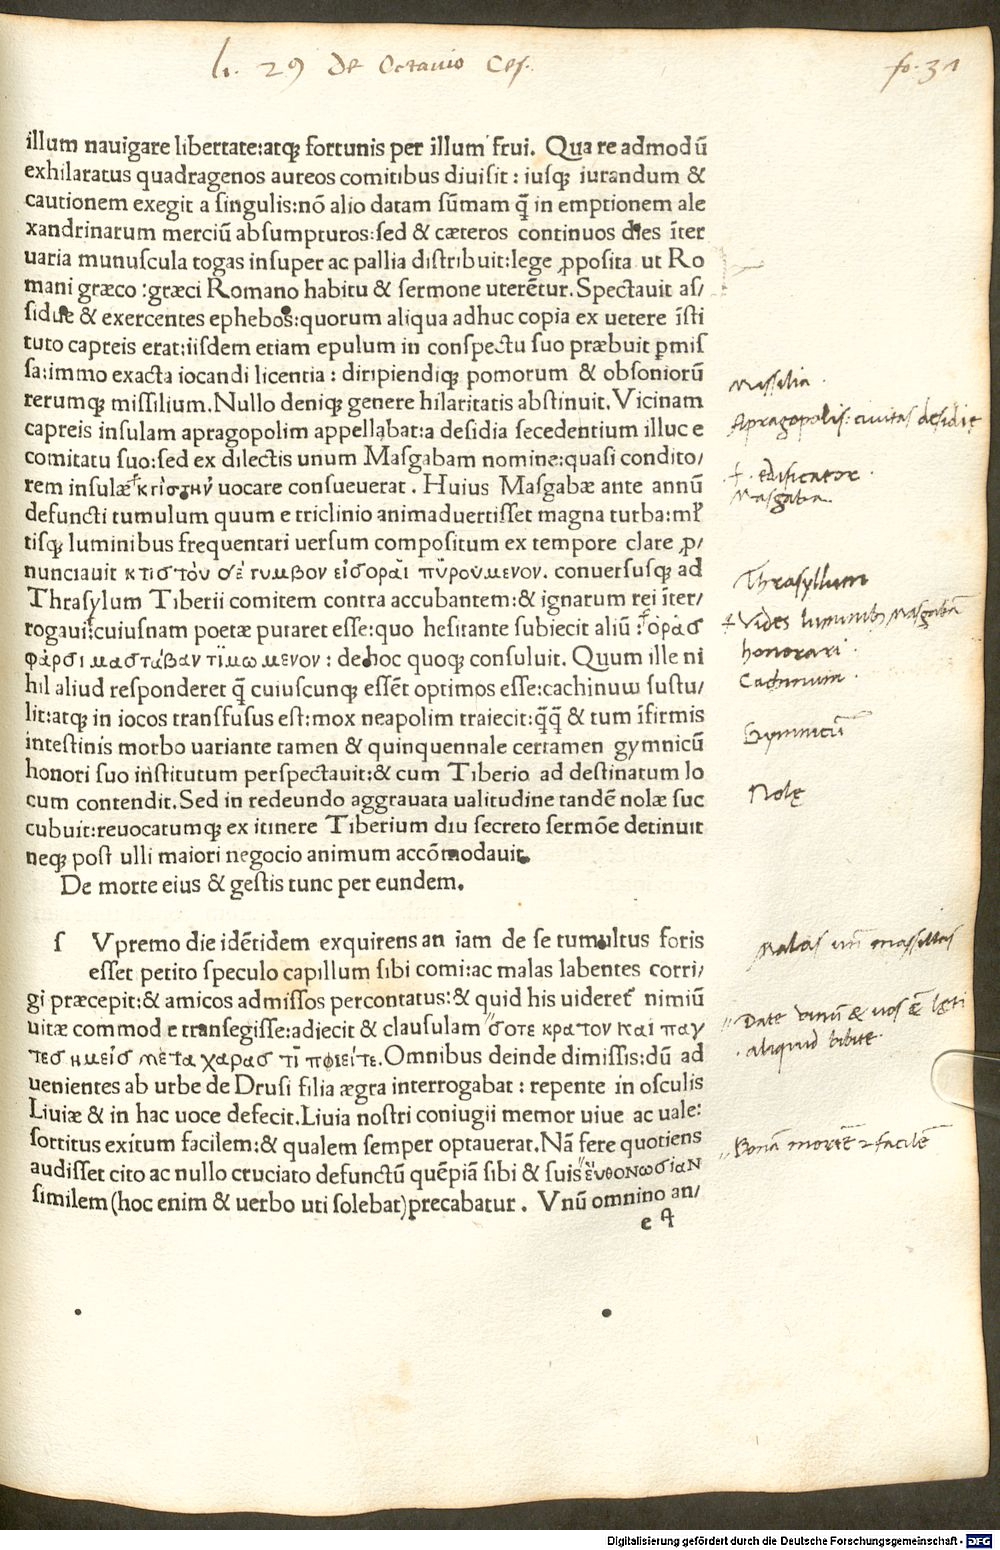 li. 29 De Octauio Ces.
fo. 31
illum nauigare libertate:atqꝫ fortunis per illum frui. Qua re admodũ
exhilaratus quadragenos aureos comitibus diuisit: iusqꝫ iurandum &
cautionem exegit a singulis:nõ alio datam sũmam q̃ in emptionem ale
xandrinarum merciũ absumpturos:sed & cæteros continuos dies ĩter
uaria munuscula togas insuper ac pallia distribuit:lege ꝓposita ut Ro
mani græco :græci Romano habitu & sermone uterẽtur. Spectauit as/
sidue & exercentes ephebos:quorum aliqua adhuc copia ex uetere ĩsti
tuto capreis erat:iisdem etiam epulum in conspectu suo præbuit ꝑmis
sa:immo exacta iocandi licentia: diripiendiqꝫ pomorum & obsoniorũ
rerumqꝫ missilium. Nullo deniqꝫ genere hilaritatis abstinuit. Vicinam
capreis insulam apragopolim appellabat:a desidia secedentium illuc e
comitatu suo:sed ex dilectis unum Masgabam nomine:quasi condito/
rem insulæ κτίστην uocare consueuerat. Huius Masgabæ ante annũ
defuncti tumulum quum e triclinio animaduertisset magna turba:ml̃
tisqꝫ luminibus frequentari uersum compositum ex tempore clare ꝓ/
nunciauit κτιστὸυ σέ τυμβον εἰσοραῖ πῦρούμενον. conuersusqꝫ ad
Thrasylum Tiberii comitem contra accubantem:& ignarum rei ĩter/
rogauit:cuiusnam poetæ putaret esse:quo hesitante subiecit aliũ: ὁρᾷσ
φάρσι μαστάβαν τΐμωμενον: de hoc quoqꝫ consuluit. Quum ille ni
hil aliud responderet q̃ cuiuscunqꝫ essẽt optimos esse:cachinuɯ sustu/
lit:atqꝫ in iocos transfusus est:mox neapolim traiecit:q̃q̃ & tum ĩfirmis
intestinis morbo uariante tamen & quinquennale certamen gymnicũ
honori suo institutum perspectauit:& cum Tiberio ad destinatum lo
cum contendit. Sed in redeundo aggrauata ualitudine tandẽ nolæ suc
cubuit:reuocatumqꝫ ex itinere Tiberium diu secreto sermõe detinuit
neqꝫ post ulli maiori negocio animum accõmodauit.
De morte eius & gestis tunc per eundem.
s Vpremo die idẽtidem exquirens an iam de se tumultus foris
esset petito speculo capillum sibi comi:ac malas labentes corri/
gi præcepit:& amicos admissos percontatus:& quid his uideret nimiũ
uitæ commode transegisse:adiecit & clausulam σοτε κρατον και παγ
τεσ ημεῖσ μετα χαρασ τῖ πφιεῖτε. Omnibus deinde dimissis:dũ ad
uenientes ab urbe de Drusi filia ægra interrogabat: repente in osculis
Liuiæ & in hac uoce defecit. Liuia nostri coniugii memor uiue ac uale:
sortitus exitum facilem:& qualem semper optauerat. Nã fere quotiens
audisset cito ac nullo cruciato defunctũ quẽpiã sibi & suis ἐυθονωσιαν
similem (hoc enim & uerbo uti solebat) precabatur. Vnũ omnino an/
e
Missilia.
Apragopolis: ciuitas desidię
✝. edificator.
Masgaba
Thrasyllum
✝ Vides luminib Masgabã
honorari.
Cachinnum.
Gymnicũ
Nolę
Malas
Date & uos lęti
. aliquid bibite
Bonã mortẽ & facilẽ
Digitalisierung gefördert durch die Deutsche Forschungsgemeinschaft - DFG